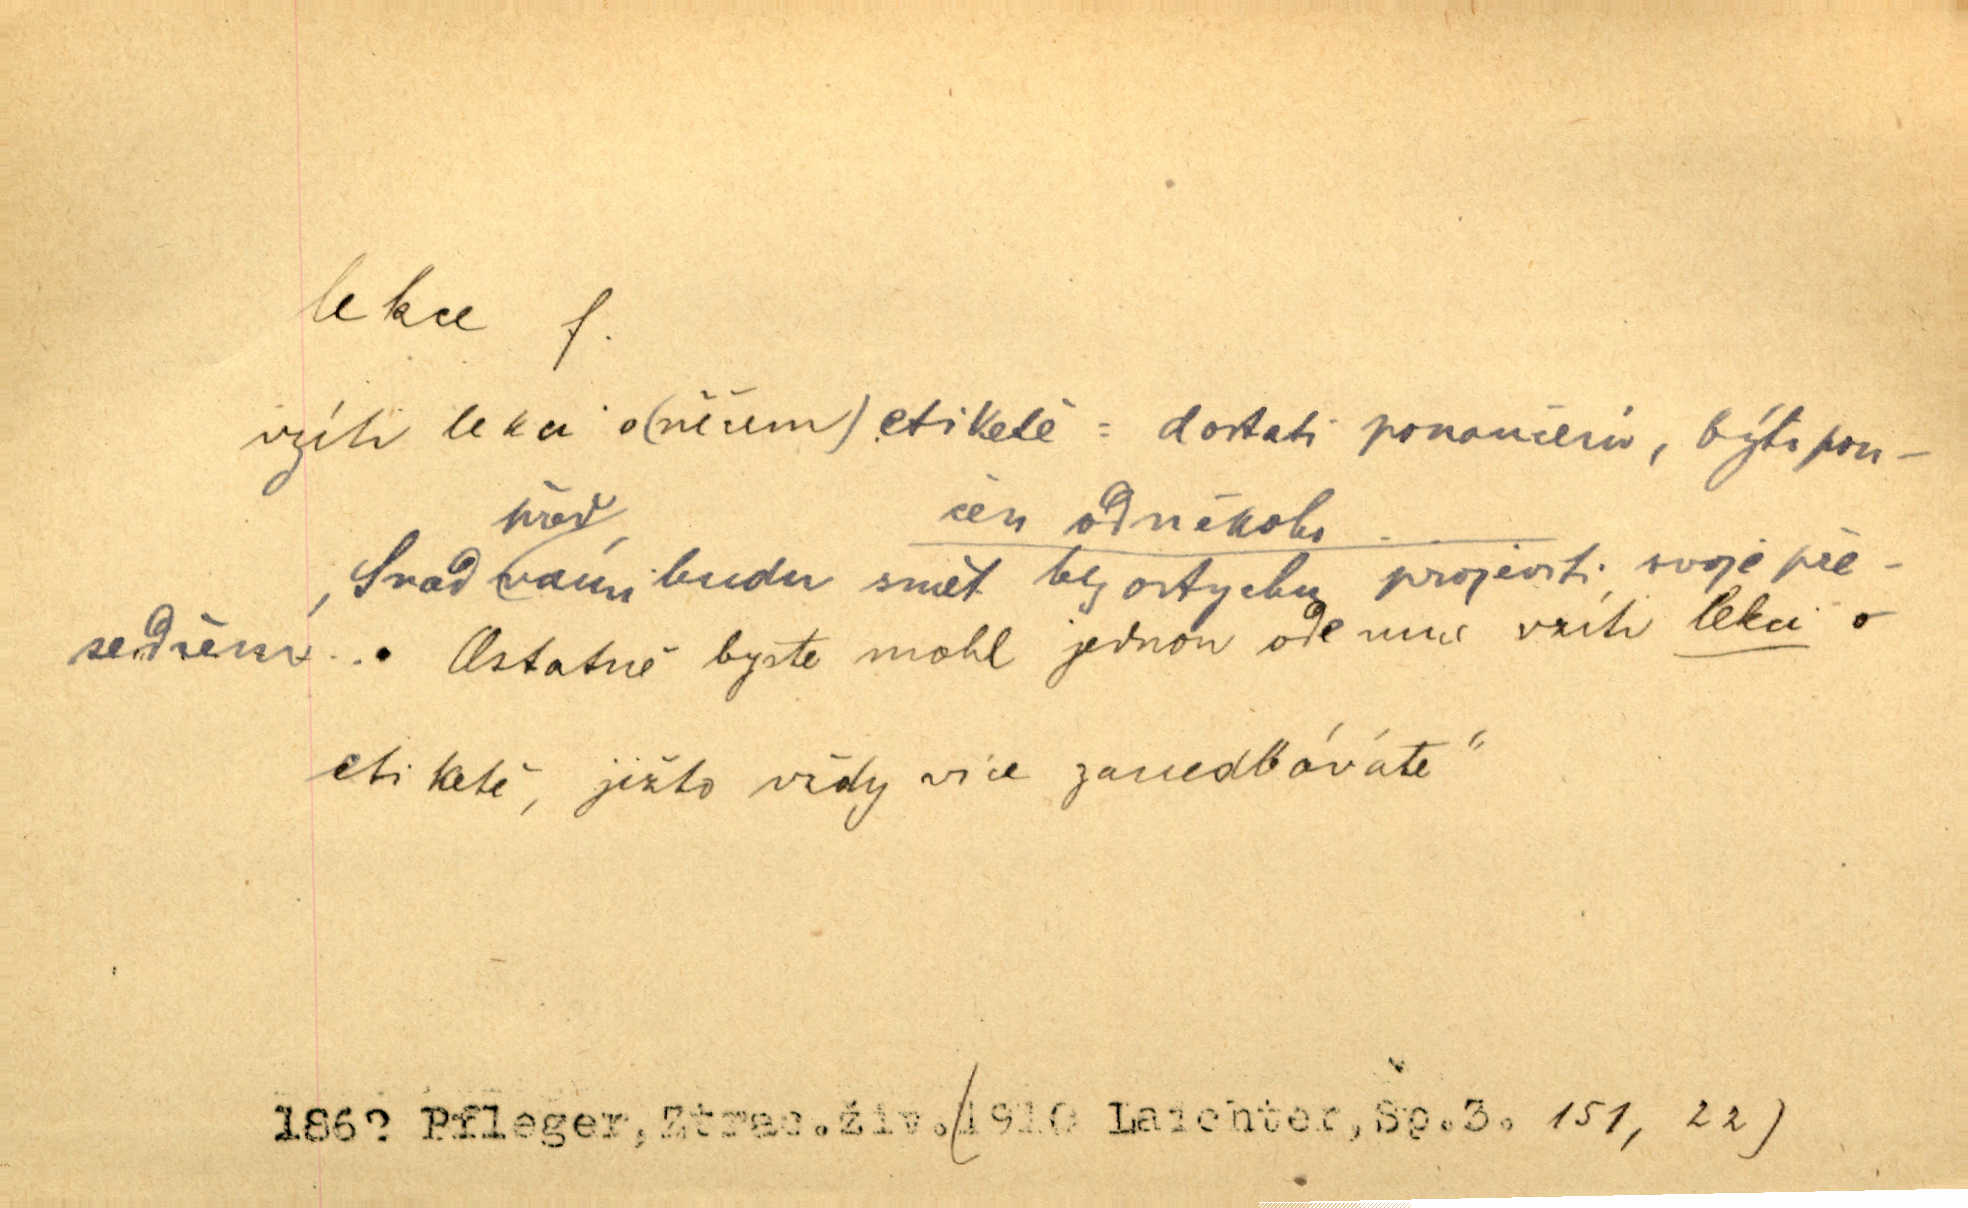 lekce f.
vzíti lekci o (něčem) etiketě = dostati ponaučení, býti pou-
čen od někoho
před
„Snad vámi budu smět bez ostychu projeviti svoje pře-
sedčení... Ostatně byste mohl jednou ode mne vzíti lekci o
etiketě, jižto vždy více zanedbáváte“
1862 Pfleger, Ztrac. živ. (1910 Laichter, Sp. 3. 151, 22)